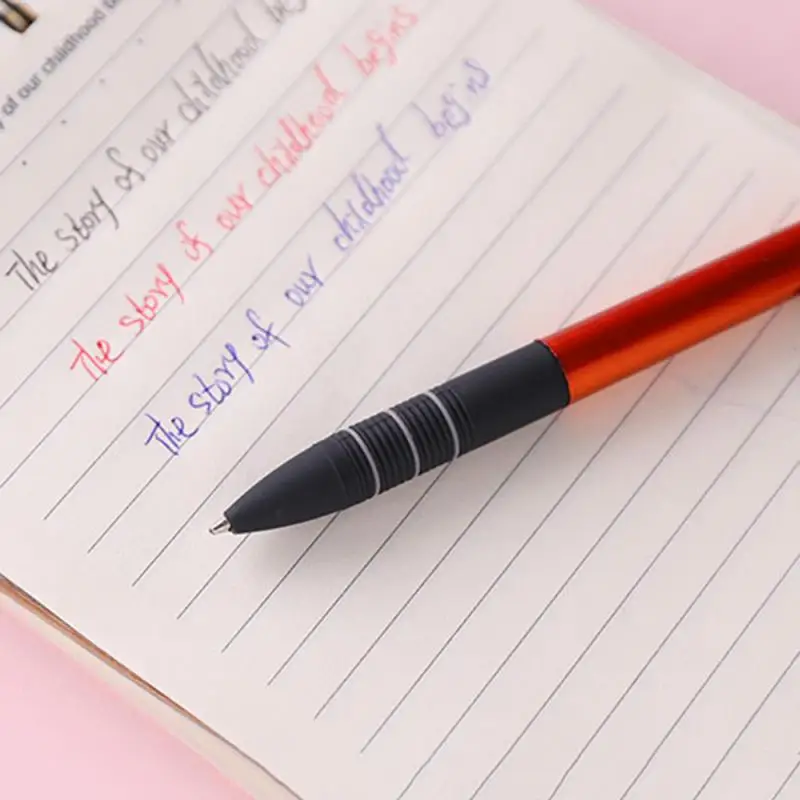 y of our childhood b
The story of our childhood be
The story of our childhood begins
The story of our childhood begins